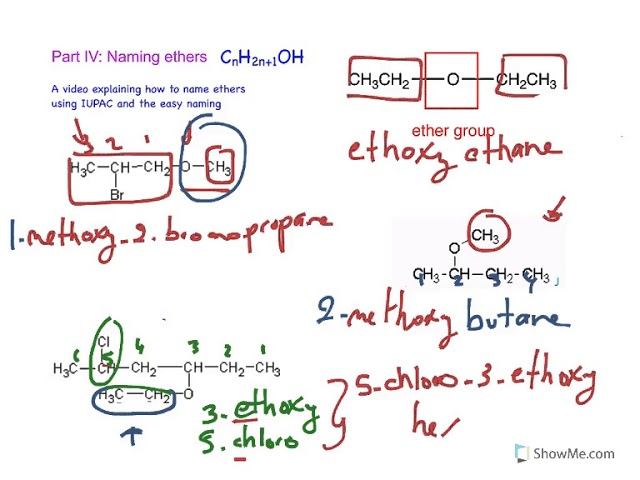 Part IV: Naming ethers CₙH₂ₙ₊₁OH
A video explaining how to name ethers
using IUPAC and the easy naming
CH₃CH₂—O—CH₂CH₃
ether group
ethoxy ethane
3 2 1
H₃C—CH—CH₂—O—CH₃
Br
1-methoxy-2-bromopropane
CH₃
O
CH₃-CH—CH₂-CH₃
1 2 3 4
2-methoxy butane
Cl
6 5 4 3 2 1
H₃C—CH—CH₂—CH—CH₂—CH₃
H₃C—CH₂—O
3-ethoxy
5-chloro
5-chloro-3-ethoxy
hex
ShowMe.com